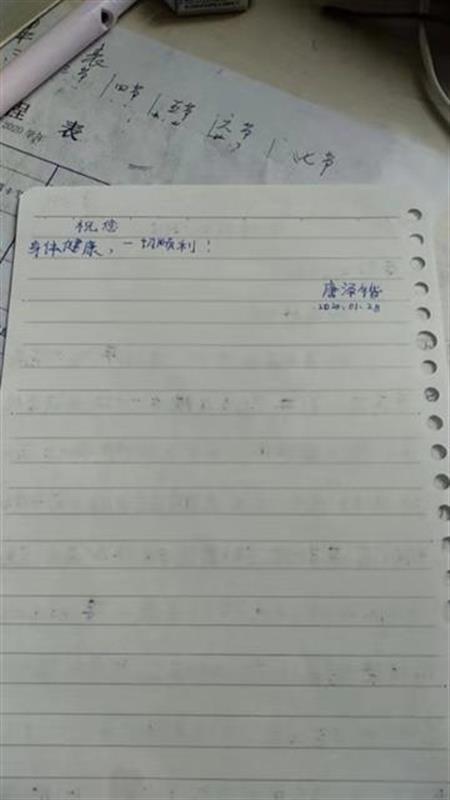 表
节
四节
五节
六节
七节
程 表
祝您
身体健康，一切顺利！
唐泽
2020.01.28